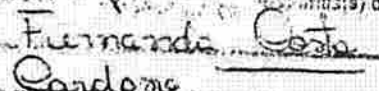 Fernanda Costa
Cardona